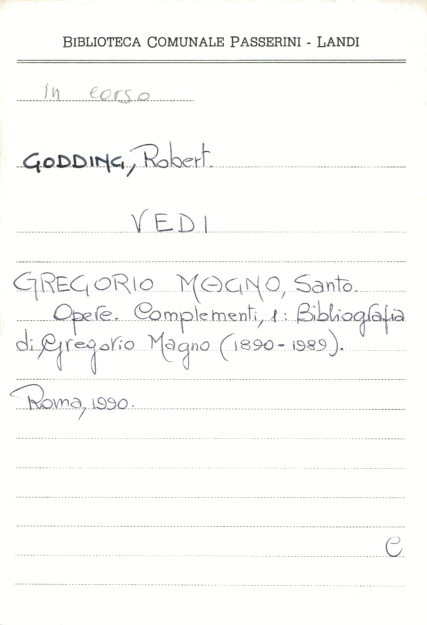 BIBLIOTECA COMUNALE PASSERINI - LANDI
In corso
GODDING, Robert.
VEDI
GREGORIO MAGNO, Santo.
Opere. Complementi, 1: Bibliografia
di Gregorio Magno (1890-1989).
Roma, 1990.
C